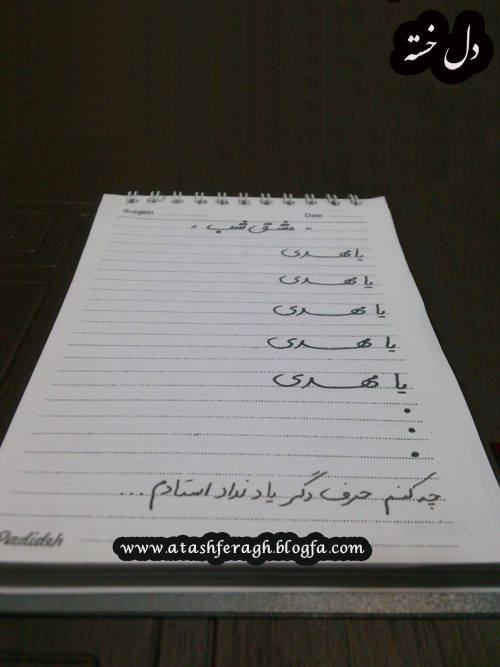 دل خسته
Subject
Date
" مشق شب "
یا مهدی
یا مهدی
یا مهدی
یا مهدی
یا مهدی
.
.
.
چه کنم حرف دگر یاد نداد استادم ...
Padideh
www.atashferagh.blogfa.com